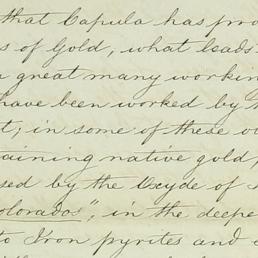 that Capula has pro
s of Gold, what leads
great many workin
have been worked by
t; in some of these o
taining native gold,
sed by the Oxyde of
olorados", in the deepe
to Iron pyrites and